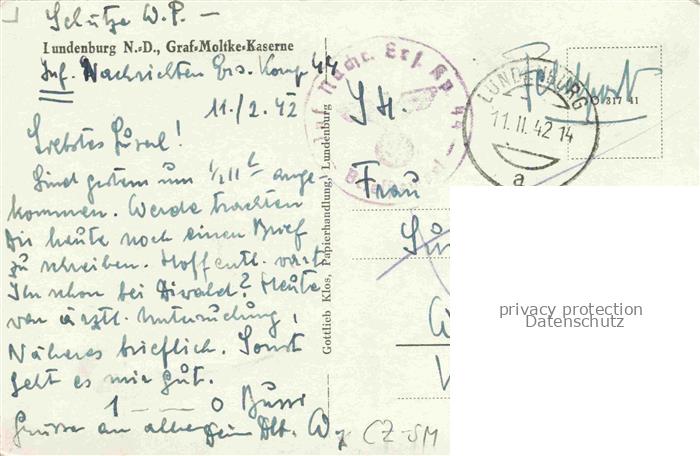 Schütze W. P. –
Lundenburg N.-D., Graf-Moltke-Kaserne
Inf. Nachrichten Ers. Komp 44
11./2. 42
Liebstes
Sind gestern um 1/2 11 h ange-
kommen. Werde trachten
Dir heute noch einen Brief
zu schreiben. Hoffentl. warst
Du schon bei Diwald? Heute
war ärztl. Untersuchung,
Näheres brieflich. Sonst
geht es mir gut.
1 - - - - 0 Bussi
Grüsse an alle Dein
CZ-SM
Gottlieb Klos, Papierhandlung, Lundenburg
Inf. Nachr. Ers. Kp. 44
Briefstempel
Feldpost
O 317 41
LUNDENBURG
11. II. 42. 14
a
Frau
privacy protection
Datenschutz